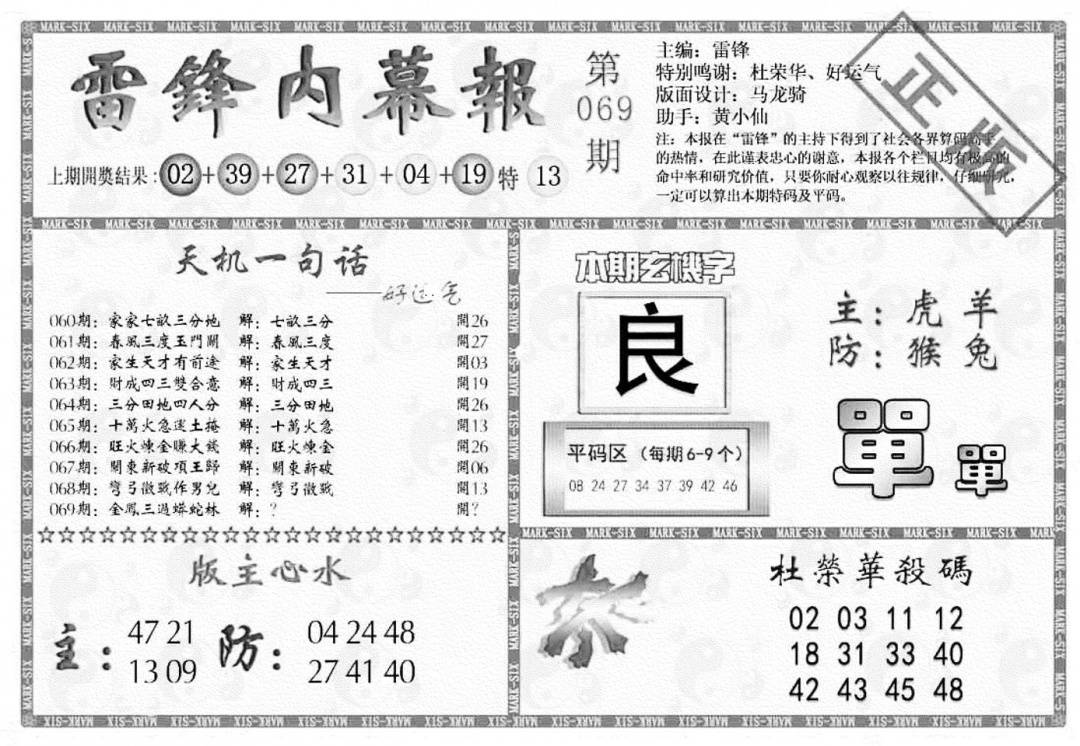 雷鋒内幕報
第
069
期
主编：雷锋
特别鸣谢：杜荣华、好运气
版面设计：马龙骑
助手：黄小仙
正版
注：本报在“雷锋”的主持下得到了社会各界算码高手
的热情，在此谨表忠心的谢意，本报各个栏目均有极高的
命中率和研究价值，只要你耐心观察以往规律，仔细研究，
一定可以算出本期特码及平码。
上期開獎结果：02+39+27+31+04+19特 13
天机一句话
——好运气
060期：家家七畝三分地 解：七畝三分 開26
061期：春風三度玉門關 解：春風三度 開27
062期：家生天才有前途 解：家生天才 開03
063期：財成四三雙合意 解：財成四三 開19
064期：三分田地四人分 解：三分田地 開26
065期：十萬火急送土掩 解：十萬火急 開13
066期：旺火煉金賺大錢 解：旺火煉金 開26
067期：關東新破項王歸 解：關東新破 開06
068期：彎弓徵戰作男兒 解：彎弓徵戰 開13
069期：金鳳三過蟒蛇林 解：？ 開？
本期玄機字
良
平码区（每期6-9个）
08 24 27 34 37 39 42 46
主：虎 羊
防：猴 兔
單 單
版主心水
主：
47 21
13 09
防：
04 24 48
27 41 40
杀
杜榮華殺碼
02 03 11 12
18 31 33 40
42 43 45 48
MARK-SIX